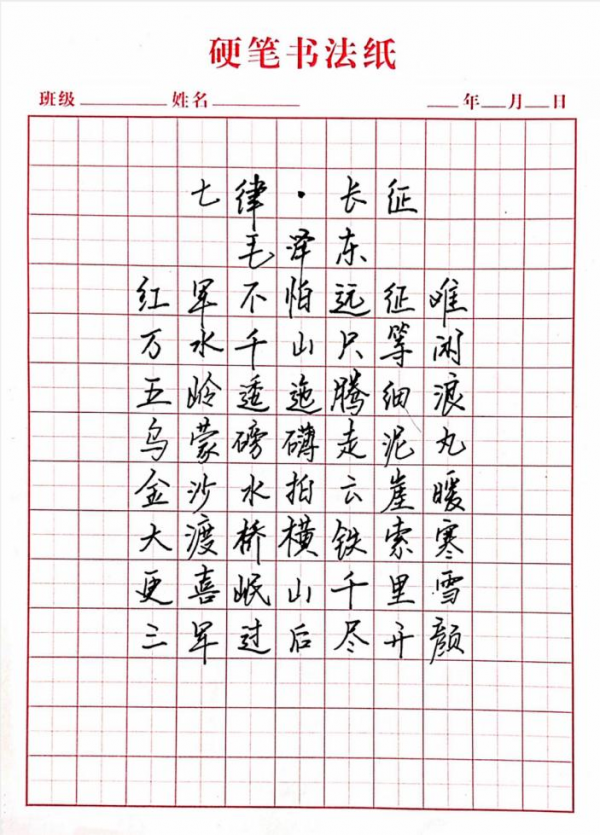 硬笔书法纸
班级 姓名 年 月 日
七律·长征
毛泽东
红军不怕远征难
万水千山只等闲
五岭逶迤腾细浪
乌蒙磅礴走泥丸
金沙水拍云崖暖
大渡桥横铁索寒
更喜岷山千里雪
三军过后尽开颜